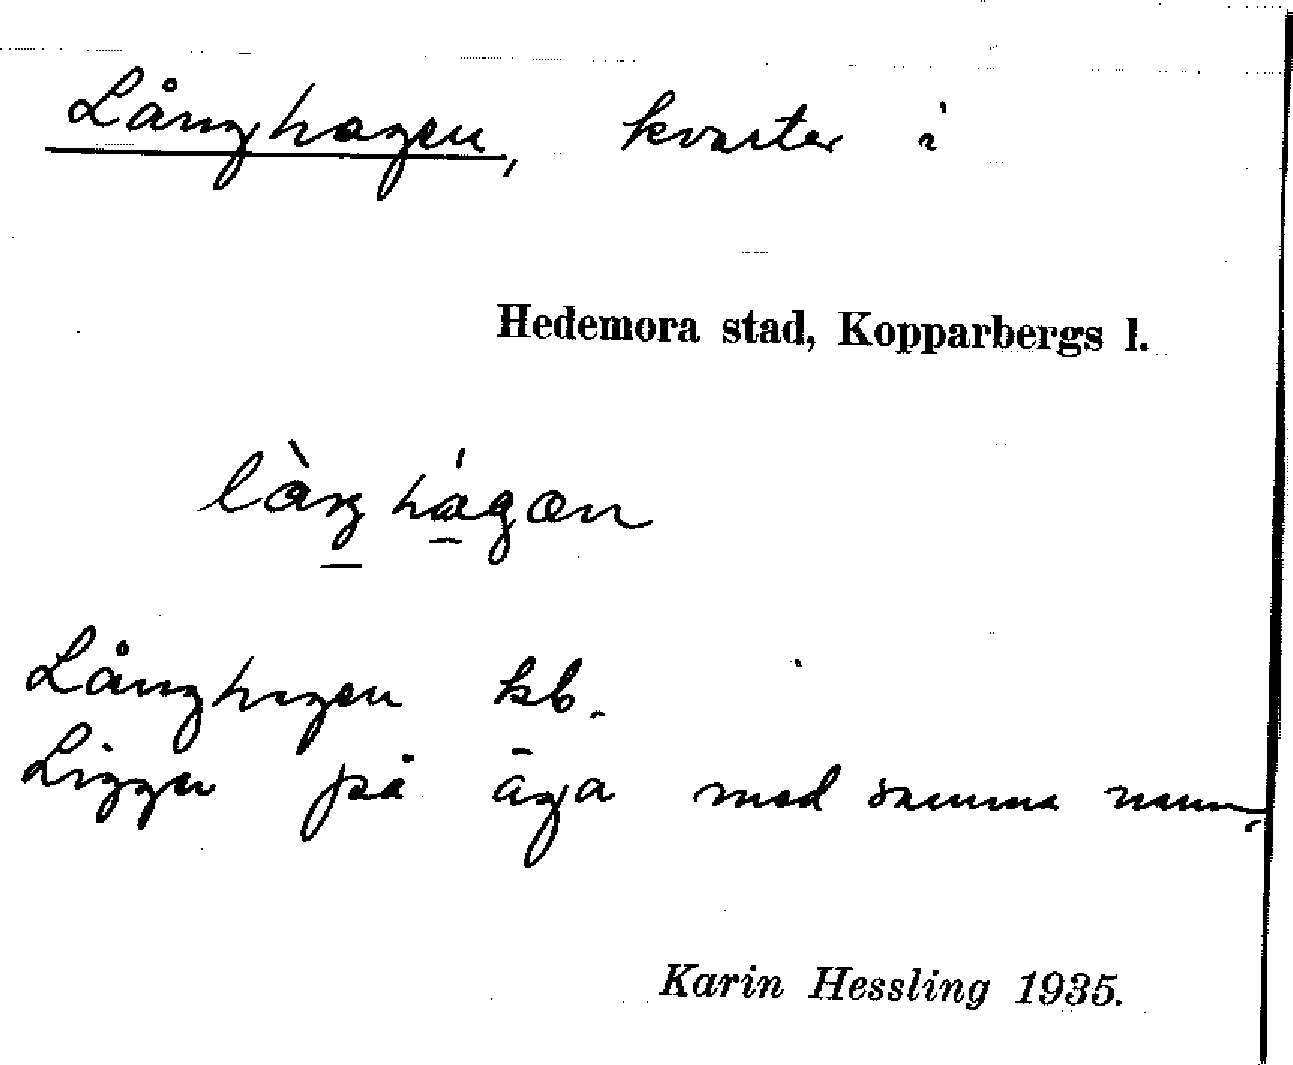 Långhagen, kvarter i
Hedemora stad, Kopparbergs l.
Långhagen kb.
Ligger på äga med samma namn.
Karin Hessling 1935.